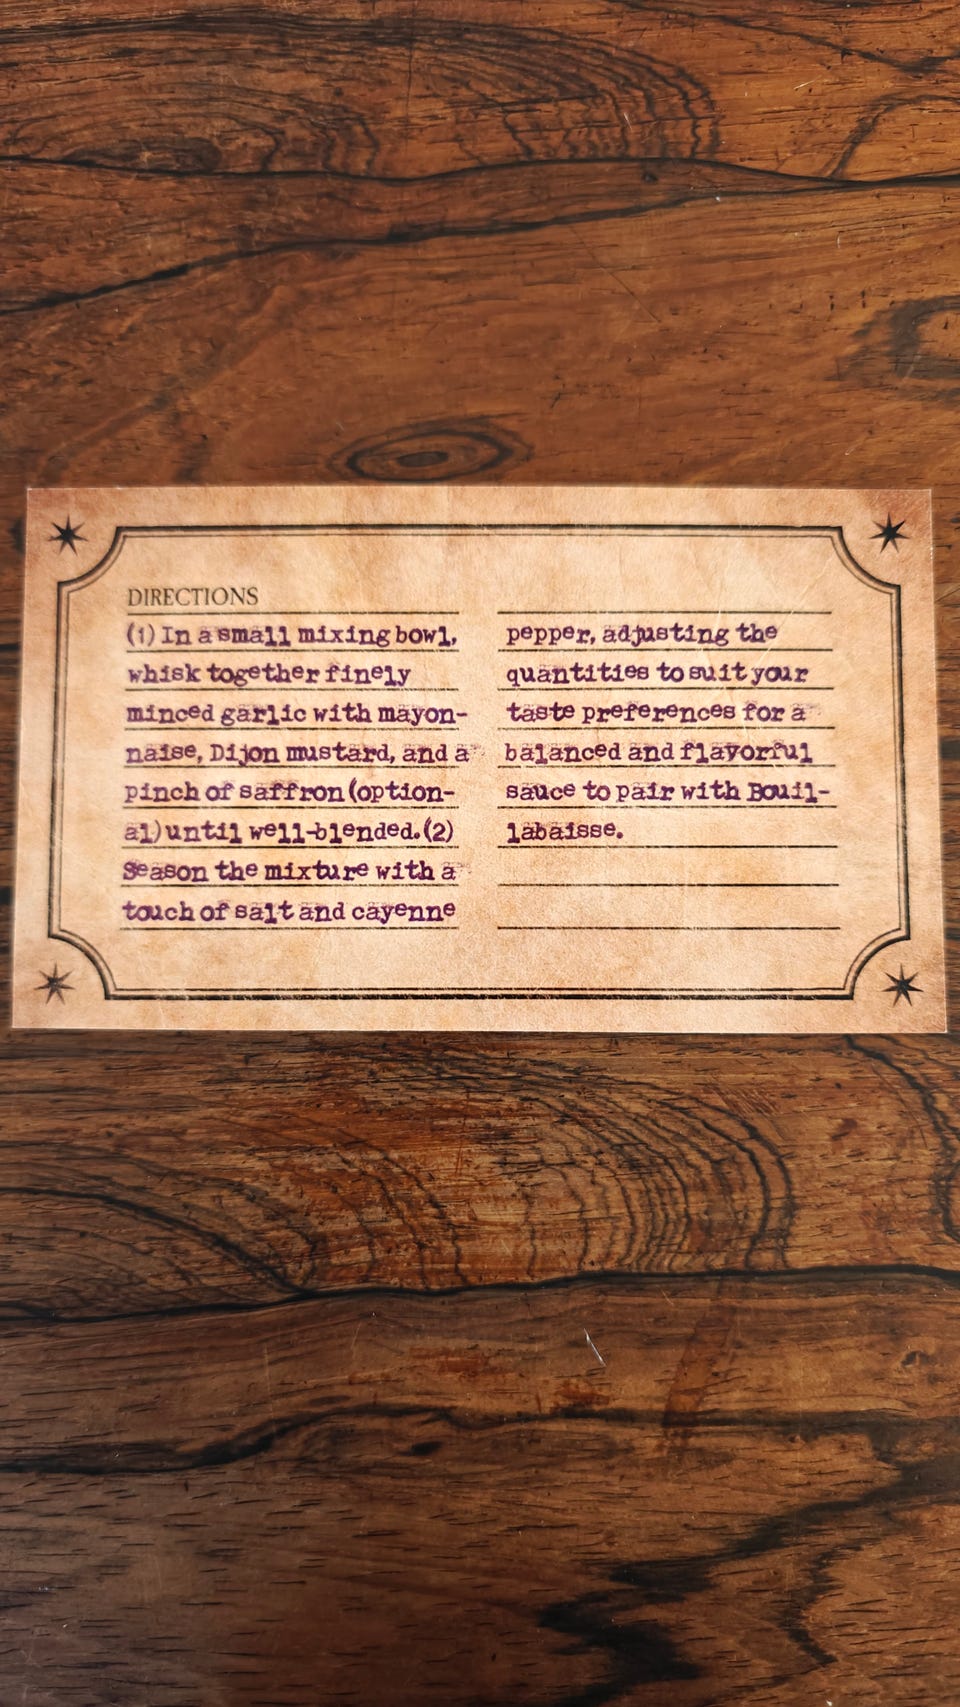 DIRECTIONS
(1) In a small mixing bowl,
whisk together finely
minced garlic with mayon-
naise, Dijon mustard, and a
pinch of saffron (option-
al) until well-blended. (2)
Season the mixture with a
touch of salt and cayenne
pepper, adjusting the
quantities to suit your
taste preferences for a
balanced and flavorful
sauce to pair with Bouil-
labaisse.